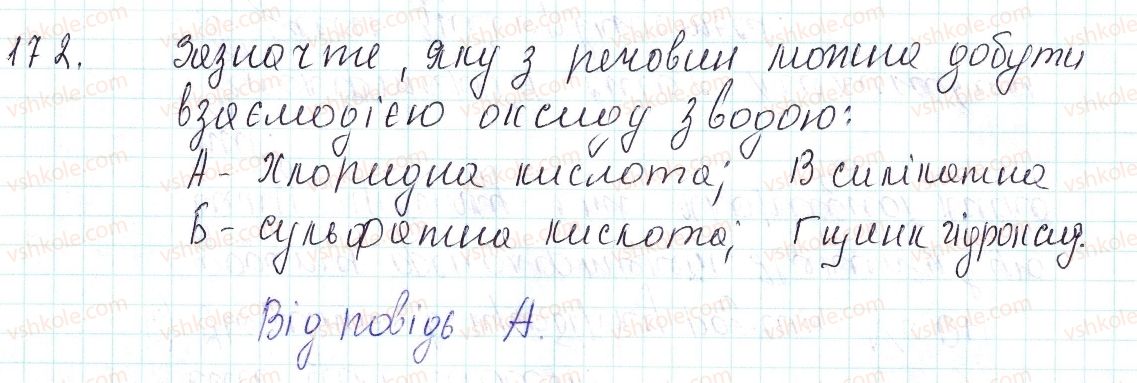 172. Зазначте, яку з речовин можна добути
взаємодією оксиду з водою:
А - хлоридна кислота; В силікатна
Б - сульфатна кислота; Г цинк гідроксид.
Відповідь А.